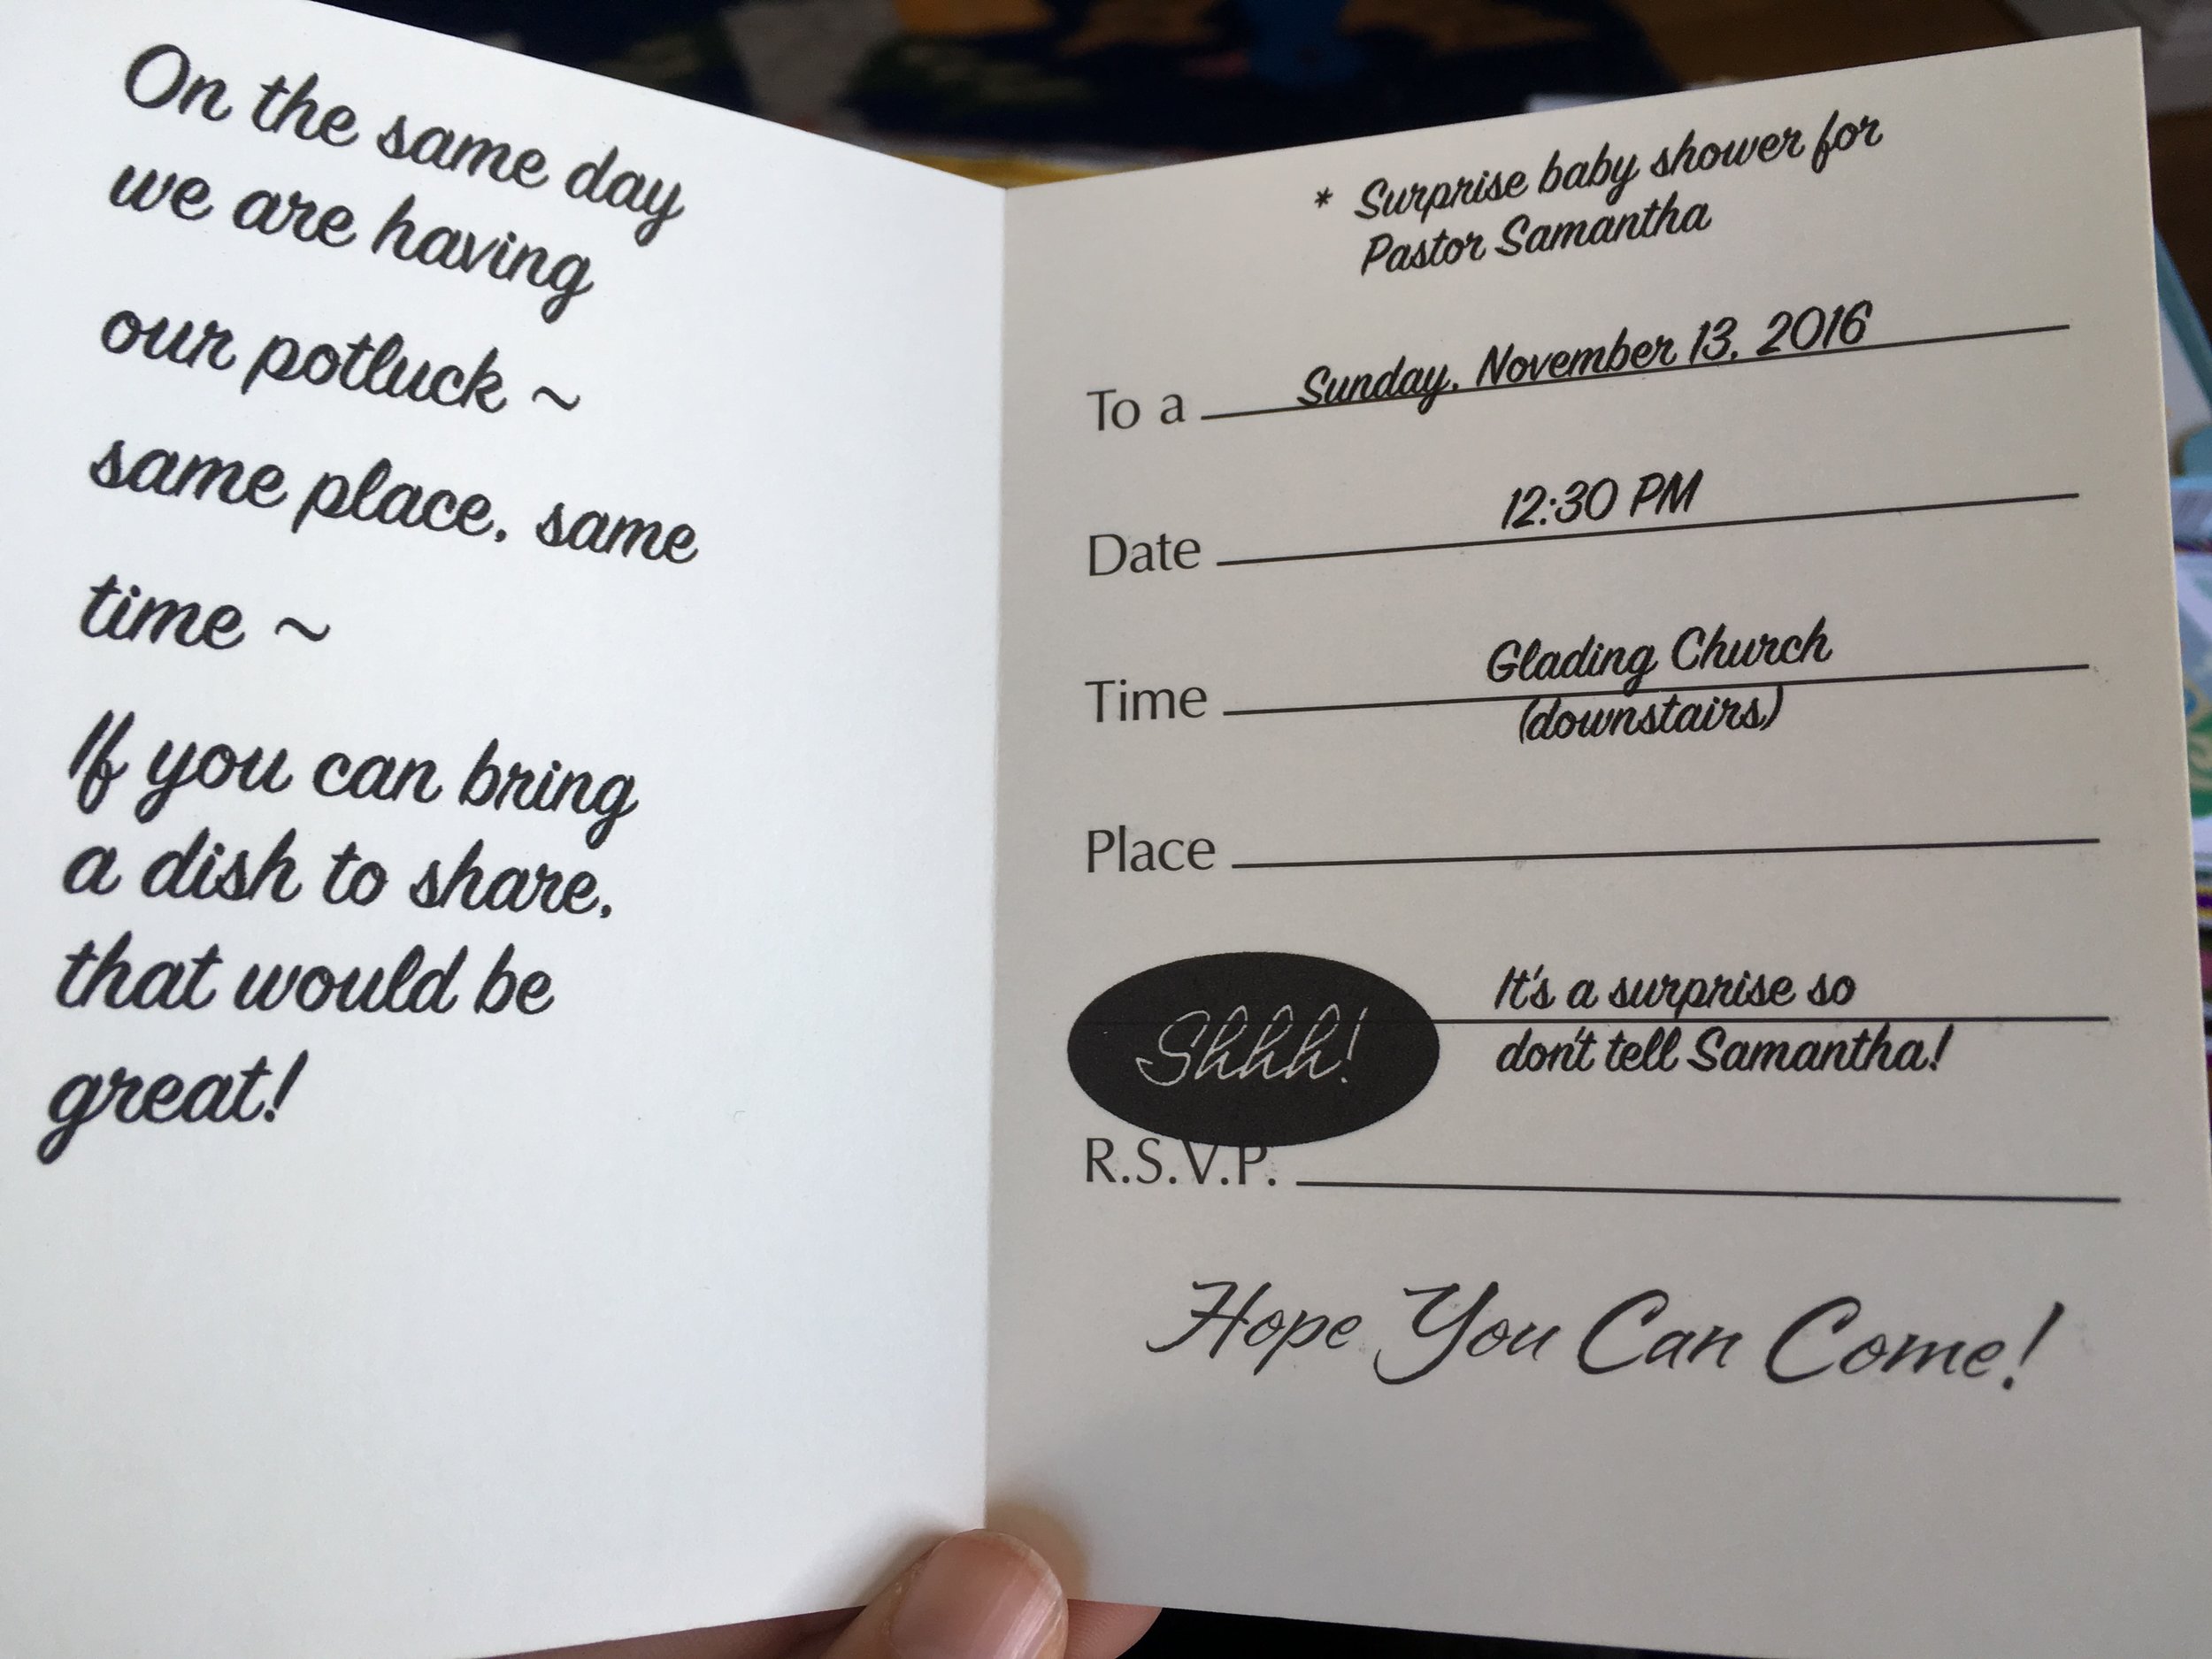 On the same day
we are having
our potluck ~
same place, same
time ~
If you can bring
a dish to share,
that would be
great!
* Surprise baby shower for
Pastor Samantha
To a Sunday, November 13, 2016
Date 12:30 PM
Time Glading Church
(downstairs)
Place
Shhh! It's a surprise so
don't tell Samantha!
R.S.V.P.
Hope You Can Come!